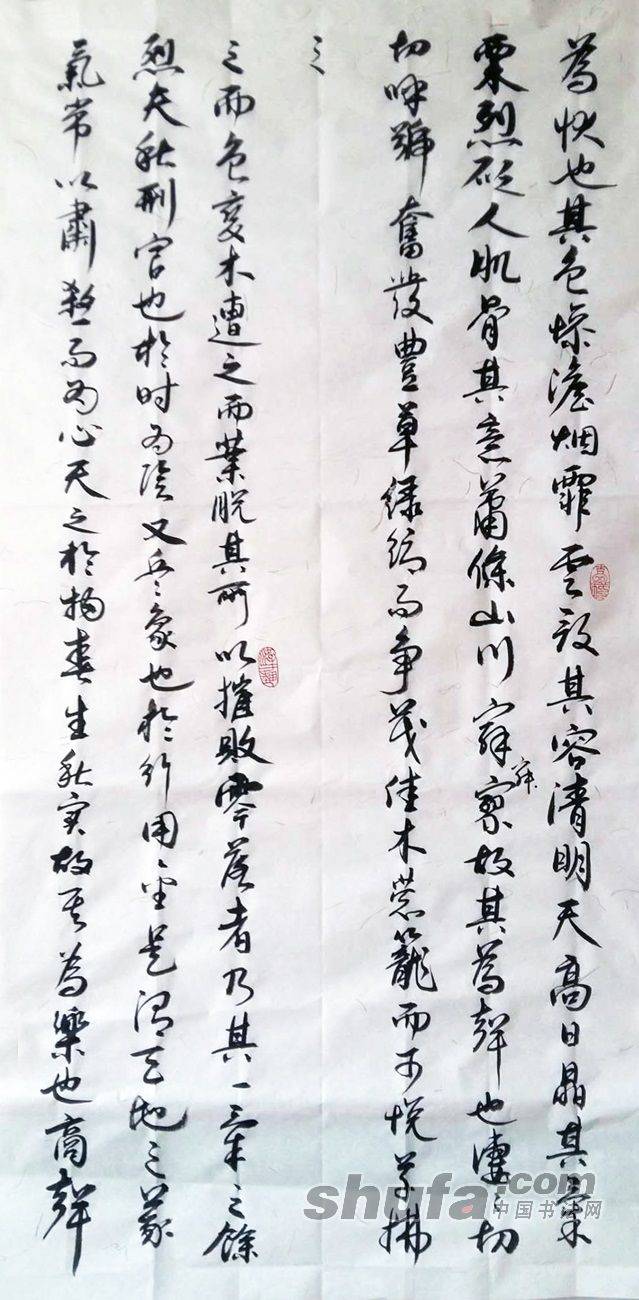 為状也其色惨澹烟霏雲斂其容清明天高日晶其氣
栗烈砭人肌骨其意蕭條山川寂寥故其為聲也凄々切
切呼號奮發豊草緑縟而争茂佳木葱籠而可悦草拂
之
之而色变木遭之而葉脱其所以摧敗零落者乃其一氣之餘
烈夫秋刑官也於时为陰又兵象也於行用金是謂天地之義
氣常以肅殺而为心天之於物春生秋实故其為樂也商聲
shufa.com
中国书法网